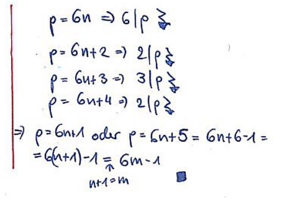 p=6n ⇒ 6|p ↯
p=6n+2 ⇒ 2|p ↯
p=6n+3 ⇒ 3|p ↯
p=6n+4 ⇒ 2|p ↯
⇒ p=6n+1 oder p=6n+5 = 6n+6-1 =
=6(n+1)-1 = 6m-1
↑
n+1=m ■